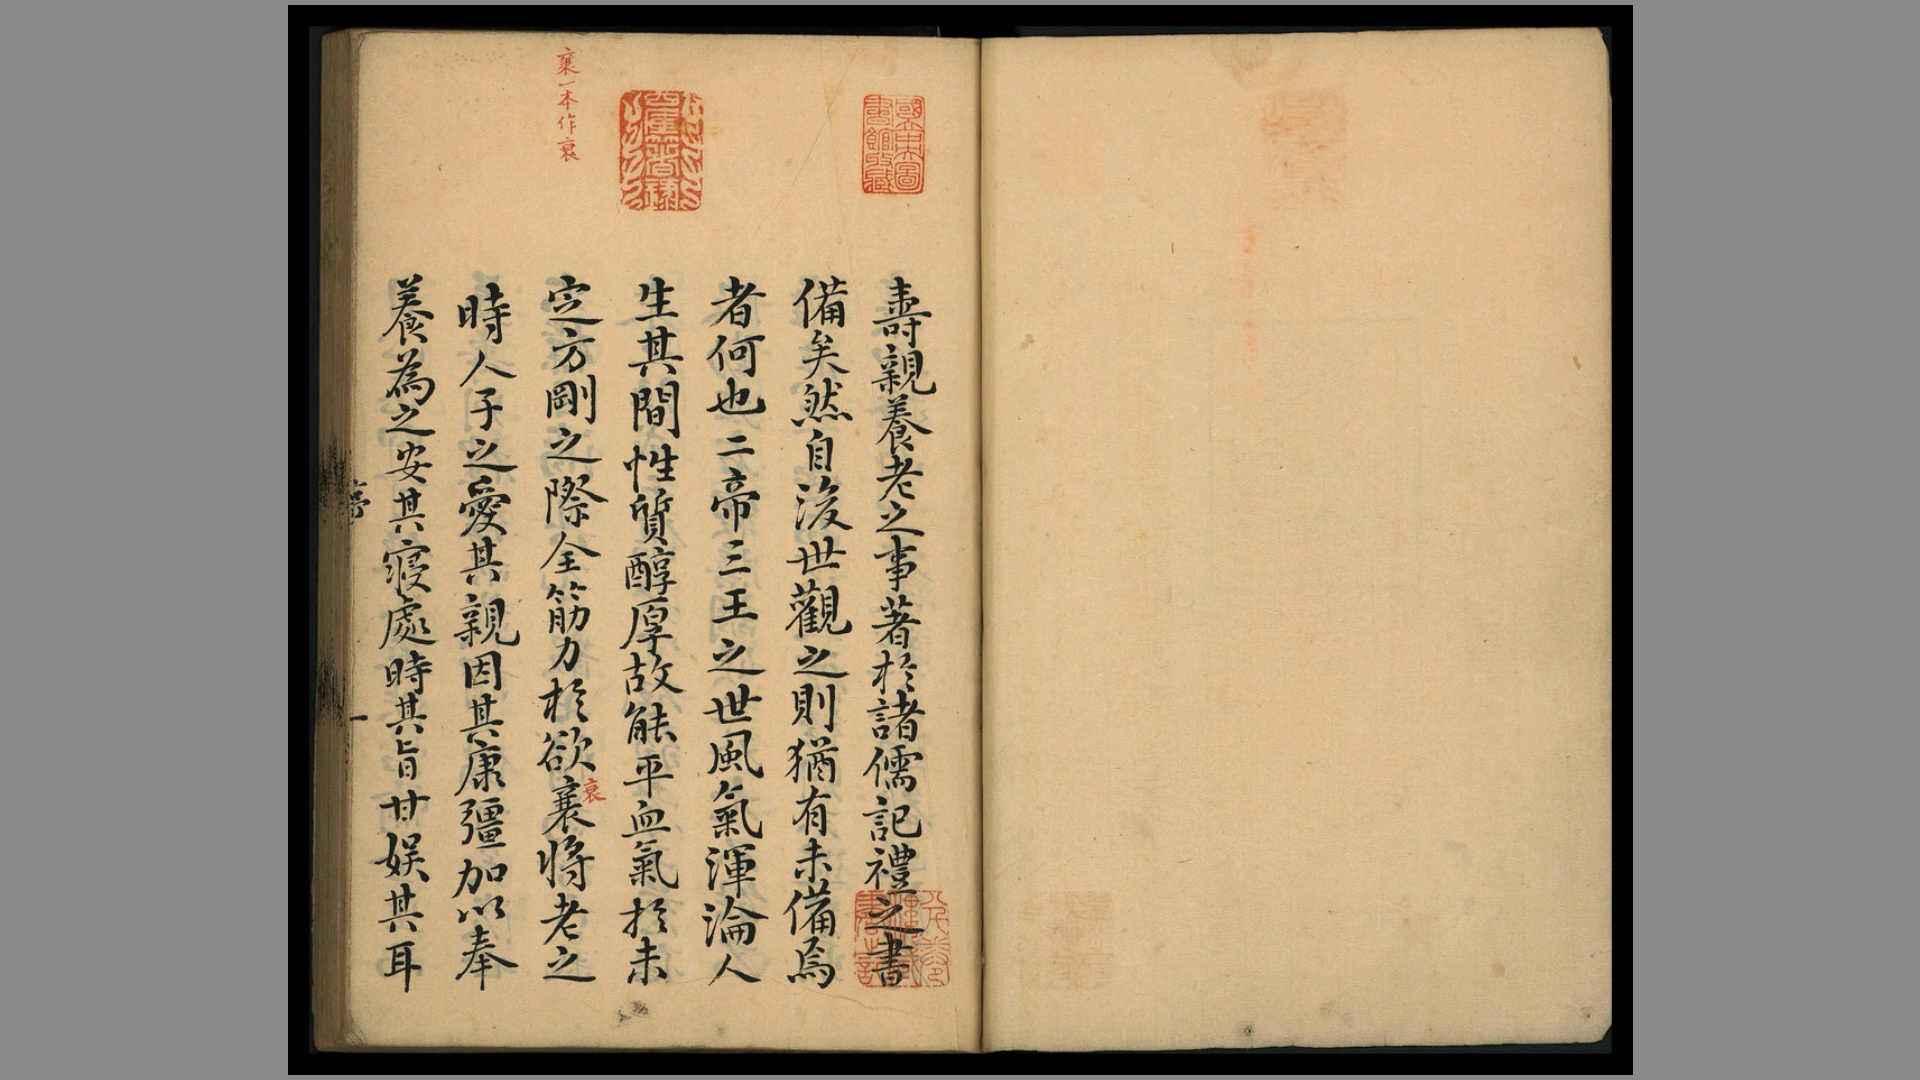 壽親養老之事著於諸儒記禮之書
備矣然自後世觀之則猶有未備焉
者何也二帝三王之世風氣渾淪人
生其間性質醇厚故能平血氣於未
定方剛之際全筋力於欲襄將老之
衰
時人子之愛其親因其康彊加以奉
養為之安其寢處時其旨甘娛其耳
襄一本作衰
國立中央圖書館收藏
序
一